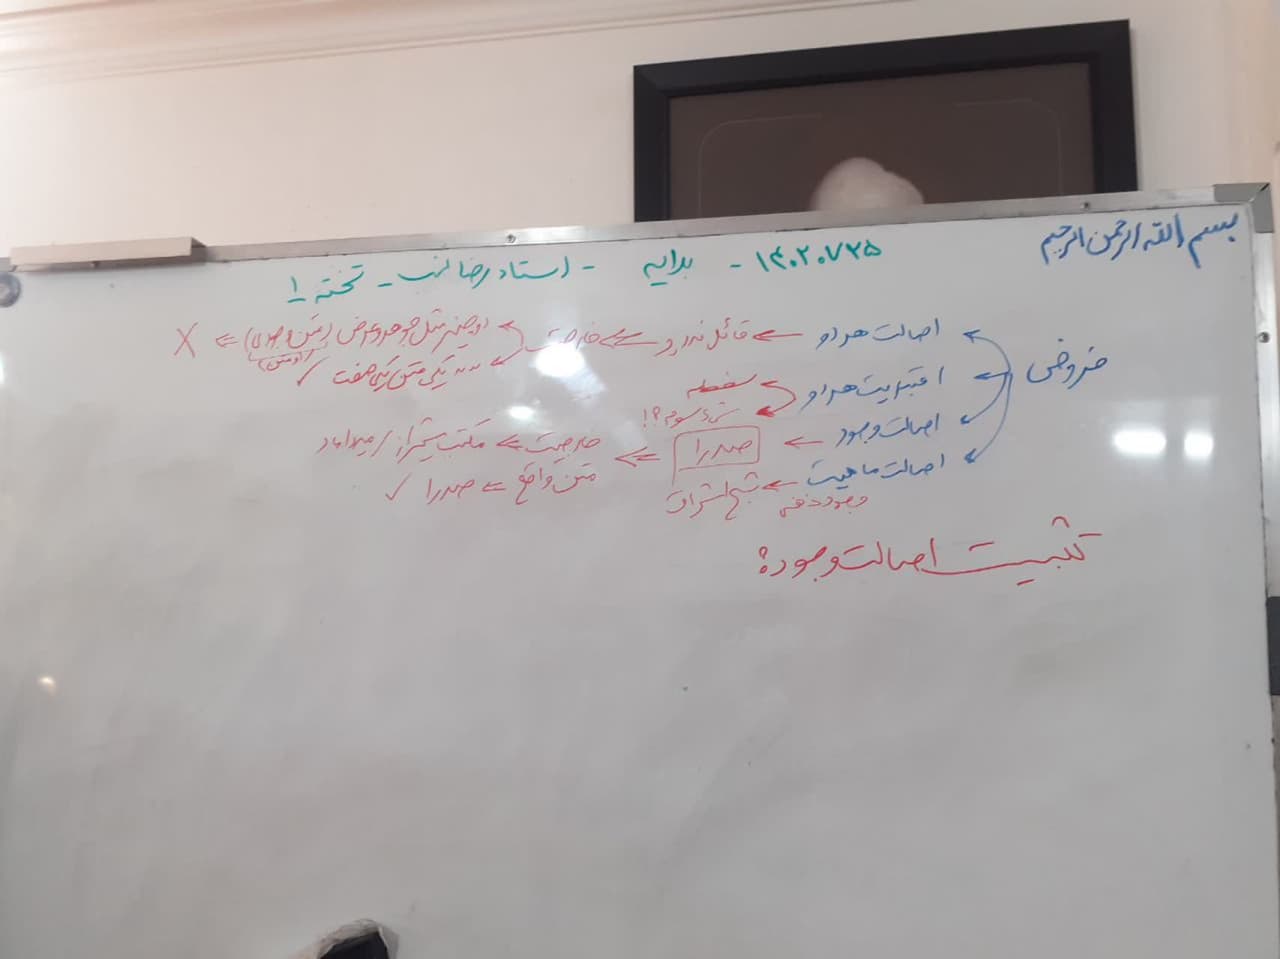 بسم الله الرحمن الرحیم
۱۴۰۲۰۷۲۵ - بدایه - استاد رضا - تخته ۱
فروض
اصالت هر دو ← قائل ندارد ⇐ خارجیت
دو چیز مثل جوهر و عرض ⇐ X
یکی متن یکی صفت ✓
اعتباریت هر دو
سفسطه
شیء سوم؟!
اصالت وجود ← صدرا ⇐
خارجیت ⇐ مکتب شیراز / میرداماد
متن واقع ⇐ صدرا ✓
اصالت ماهیت ← شیخ اشراق
وجود ذهنی
تثبیت اصالت وجود: